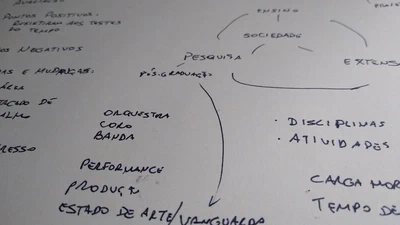 AVALIAÇÃO
PONTOS POSITIVOS:
RESISTIRAM AOS TESTES
DO TEMPO
NEGATIVOS
E MUDANÇAS:
DE
ENSINO
SOCIEDADE
PESQUISA
PÓS-GRADUAÇÃO
ORQUESTRA
CORO
BANDA
PERFORMANCE
ESTADO DE ARTE/VANGUARDA
· DISCIPLINAS
· ATIVIDADES
CARGA
TEMPO DE